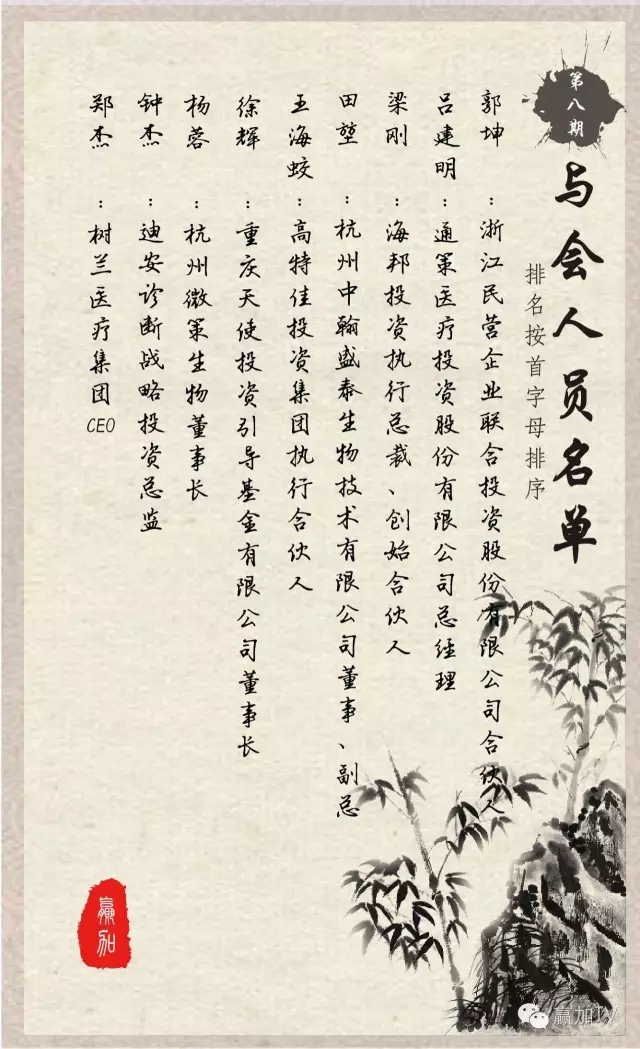 第八期
与会人员名单
排名按首字母排序
郭坤：浙江民营企业联合投资股份有限公司合伙人
吕建明：通策医疗投资股份有限公司总经理
梁刚：海邦投资执行总裁、创始合伙人
田堃：杭州中翰盛泰生物技术有限公司董事、副总
王海蛟：高特佳投资集团执行合伙人
徐辉：重庆天使投资引导基金有限公司董事长
杨蓉：杭州微策生物董事长
钟杰：迪安诊断战略投资总监
郑杰：树兰医疗集团CEO
赢加
赢加TV